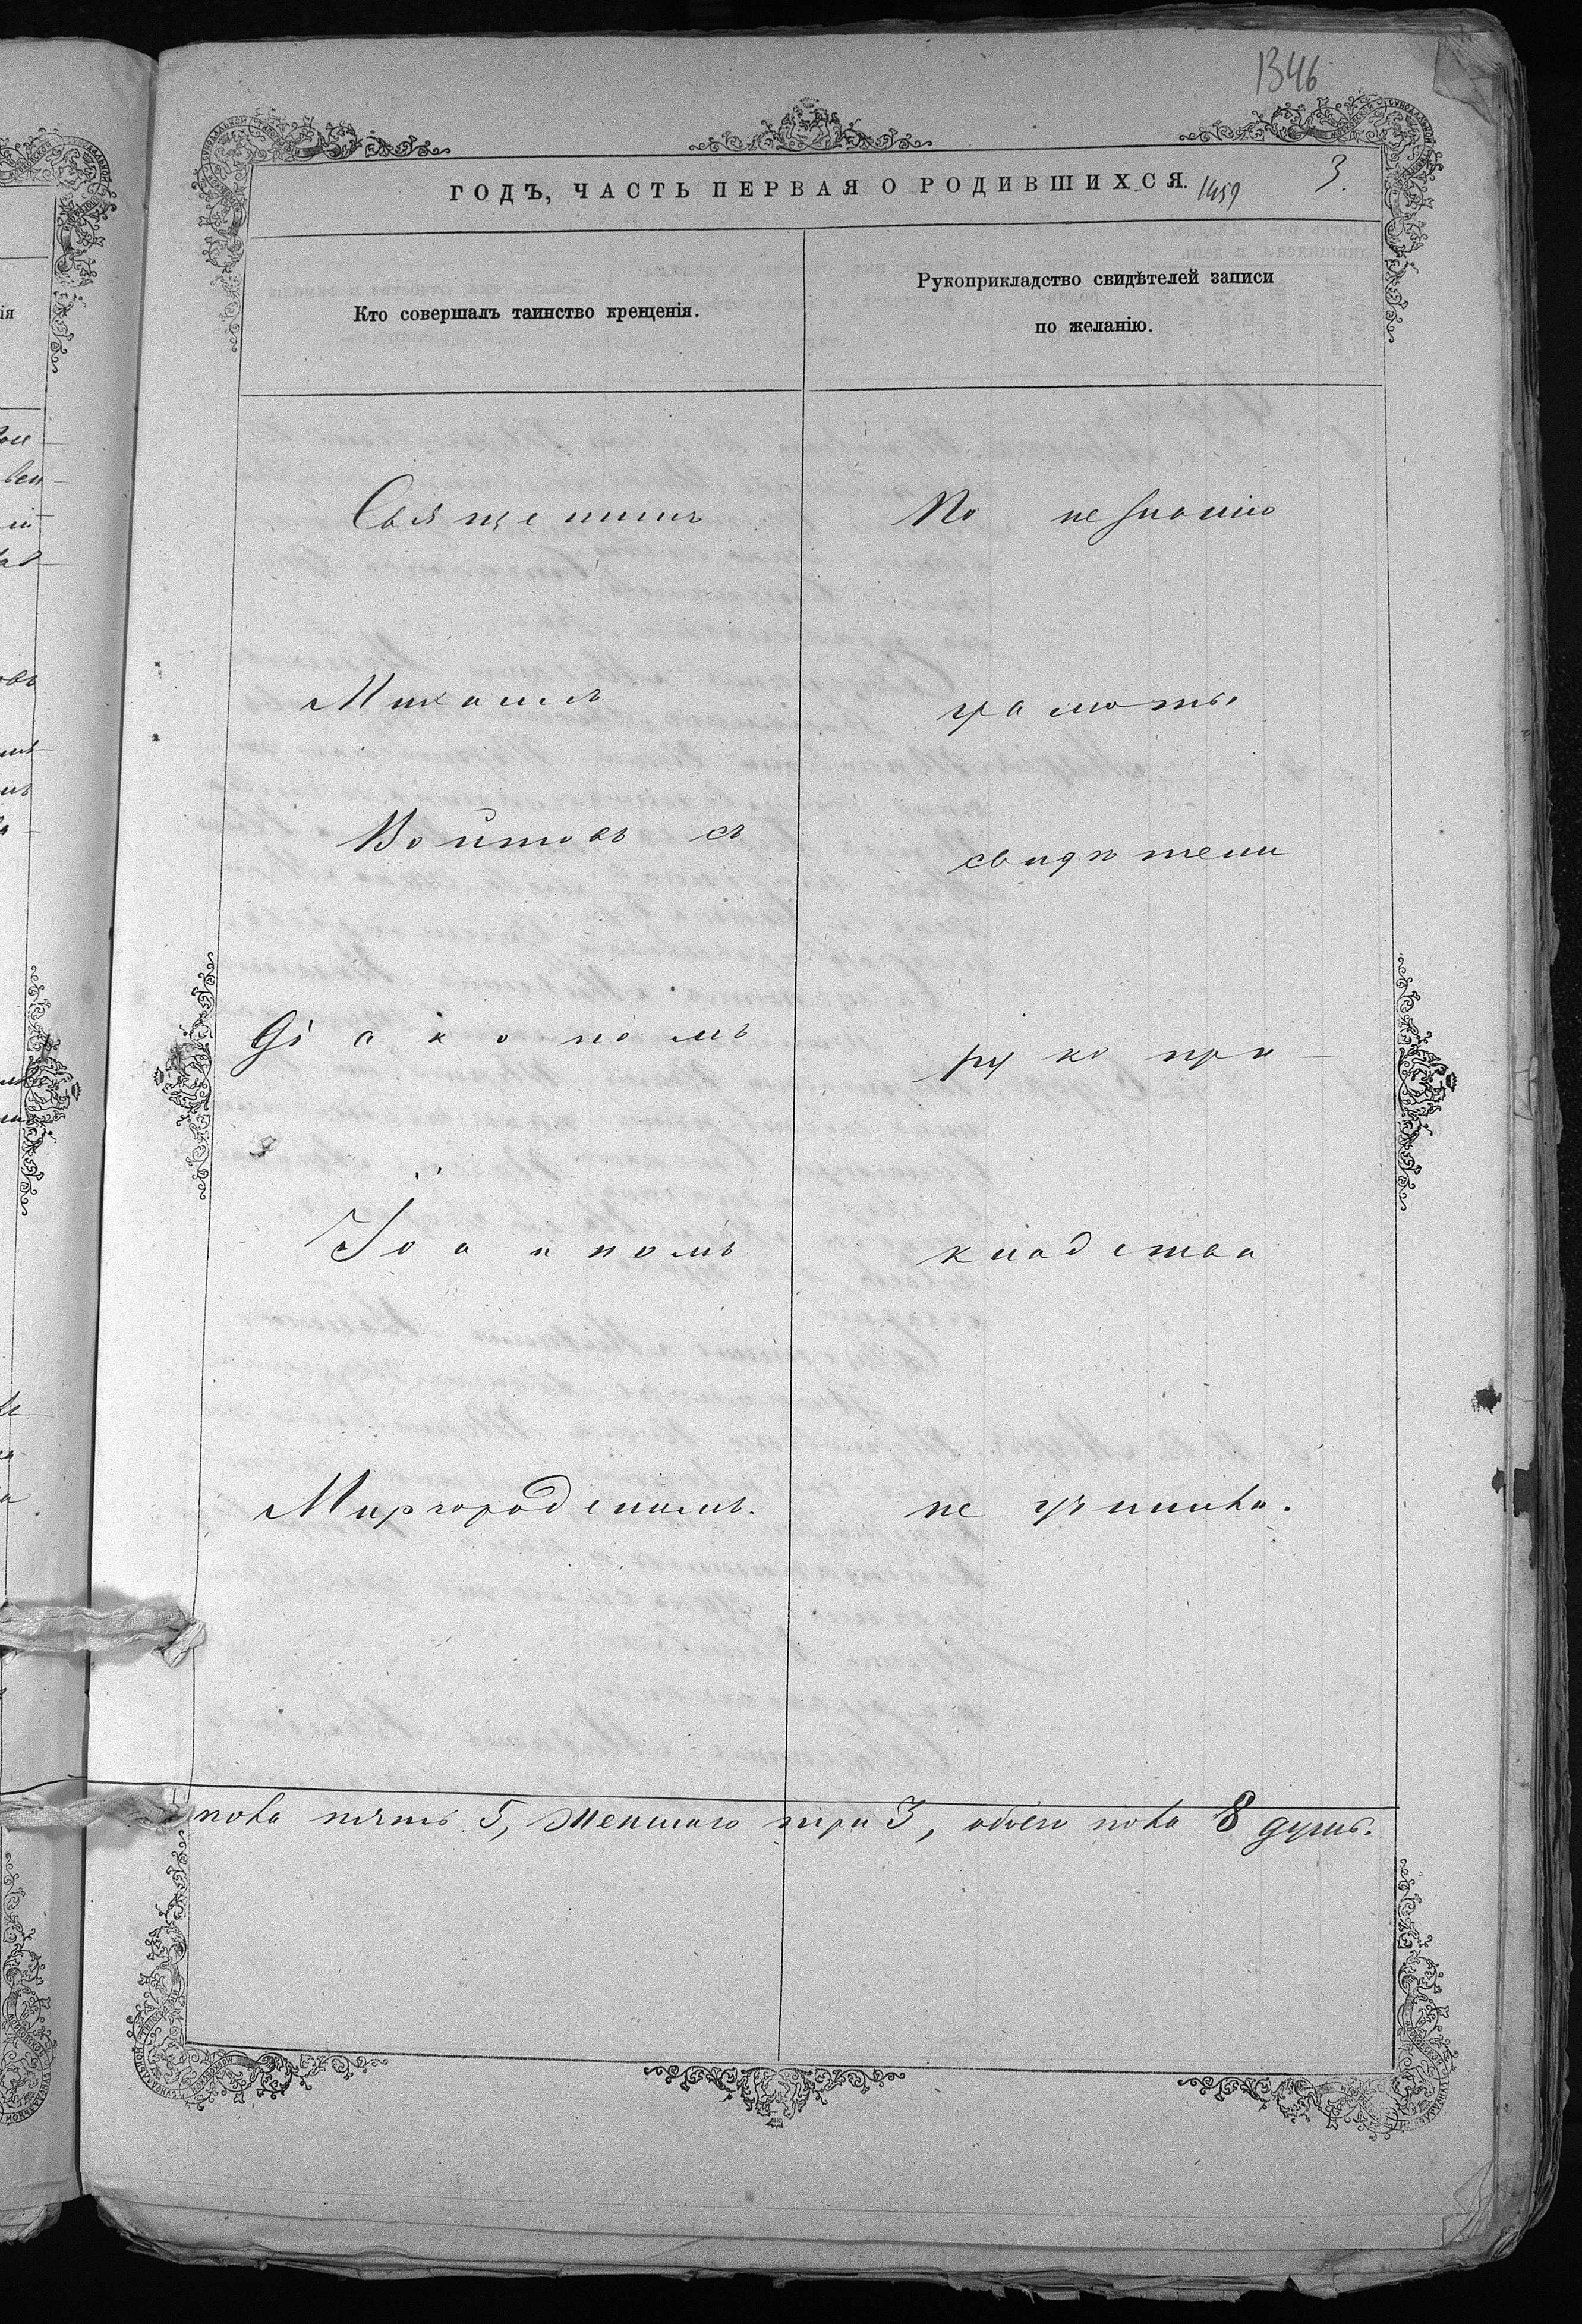 1346
ГОДЪ, ЧАСТЬ ПЕРВАЯ О РОДИВШИХСЯ. 1459 3.
Кто совершалъ таинство крещенія.
Рукоприкладство свидѣтелей записи
по желанію.
Священникъ
Михаилъ
Войтовъ съ
діакономъ
Іоанномъ
Миргородскимъ.
По незнанію
грамоты
свидѣтели
рукопри-
кладства
не учинили.
пола пять 5, женскаго три 3, обоего пола 8 душъ.